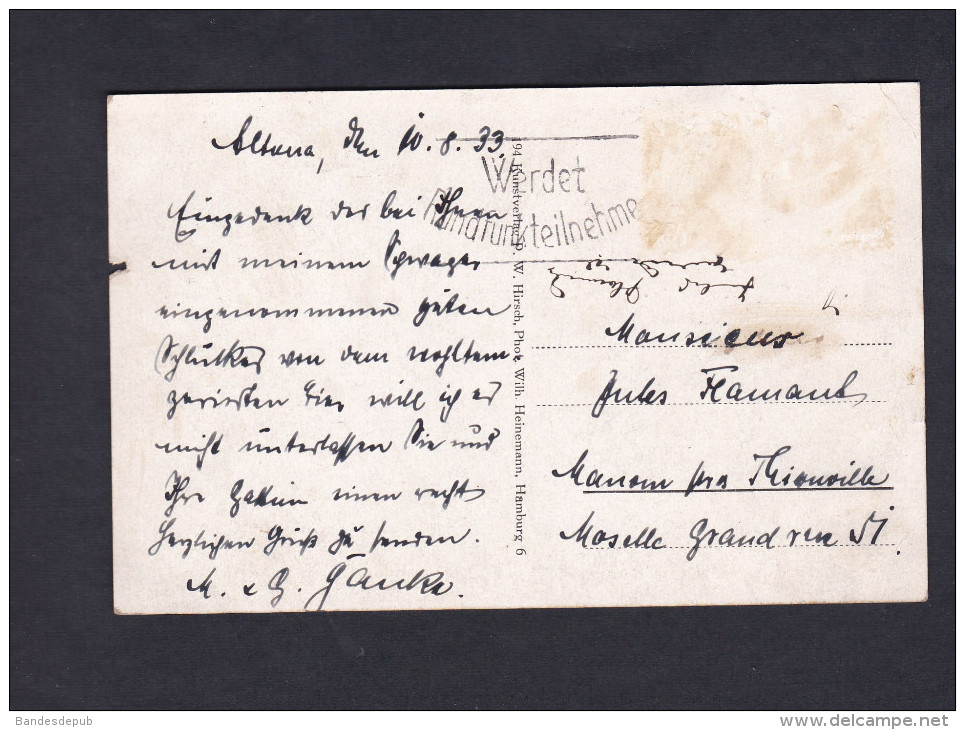 Altona, den 10.8.33.
Eingedenk des bei Ihnen
mit meinem Schwager
eingenommenen guten
Schluckes von dem wohltem-
perierten Bier will ich es
nicht unterlassen Sie und
Ihre Gattin einen recht
herzlichen Gruß zu senden.
M. & G. Gänke.
Werdet
Rundfunkteilnehme
194 Kunstverlag D. W. Hirsch, Phot. Wilh. Heinemann, Hamburg 6
Monsieur
Jules Flamant
Manom prs Thionville
Moselle Grand rue 51.
Bandesdepub
www.delcampe.net